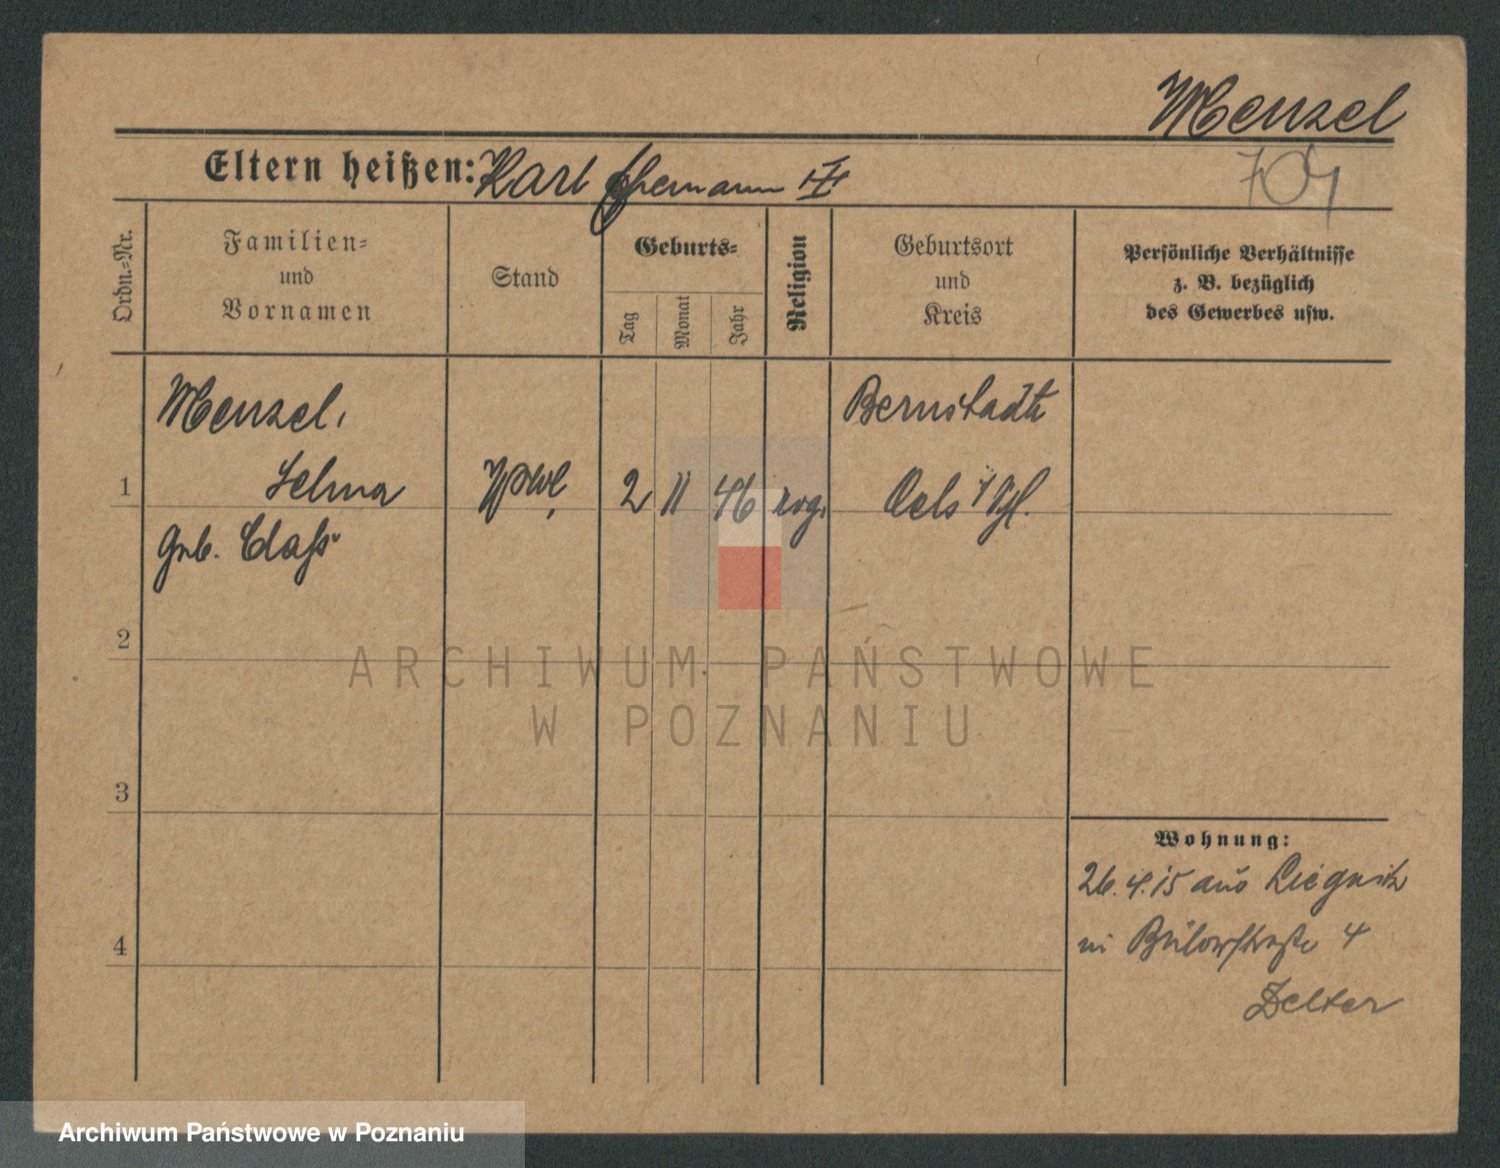 Menzel
704
Eltern heißen: Karl Ehemann
Ordn.=Nr.
Familien=
und
Vornamen
Stand
Geburts=
Tag
Monat
Jahr
Religion
Geburtsort
und
Kreis
Persönliche Verhältnisse
z. B. bezüglich
des Gewerbes usw.
Menzel,
Bernstadt
1 Selma Wwe 2 11 46 evg. Oels
geb. Claß
2
3
4
Wohnung:
26.4.15 aus Liegnitz
Bülowstraße 4
ARCHIWUM PAŃSTWOWE
W POZNANIU
Archiwum Państwowe w Poznaniu